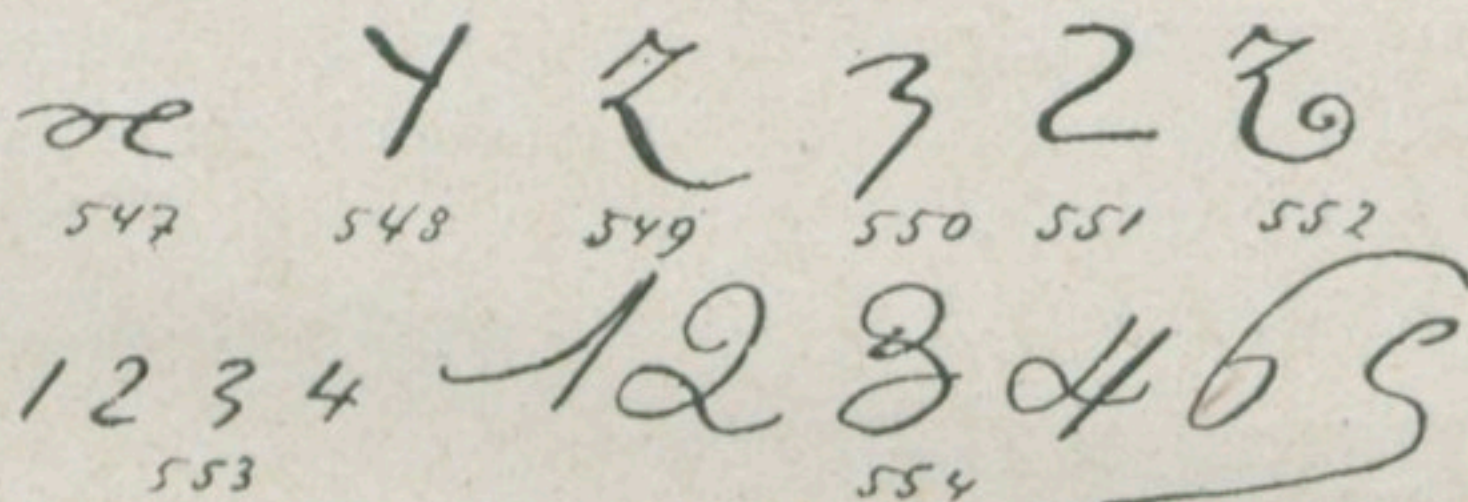 x y z 3 2 z
547 548 549 550 551 552
1 2 3 4 1 2 3 4 6 5
553 554